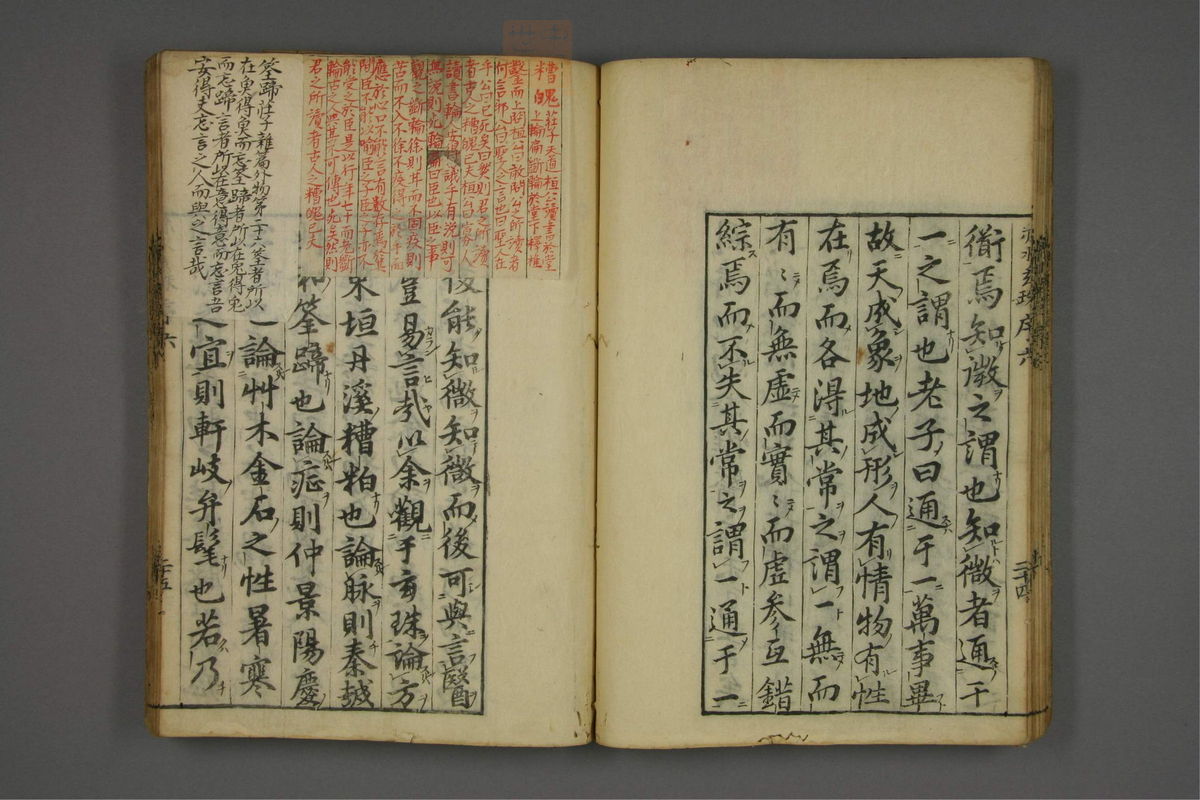 赤水玄珠序六
二十四
衟焉知微之謂也知微者通于
一之謂也老子曰通于一萬事畢
故天成象地成形人有情物有性
在焉而各得其常之謂一無而
有〻而無虛而實〻而虛參互錯
綜焉而不失其常之謂一通于一
後能知微知微而後可與言醫
豈易言哉以余觀于玄珠論方
東垣丹溪糟粕也論脉則秦越
和筌蹄也論症則仲景陽慶
論艸木金石之性暑寒
宜則軒岐弁髦也若乃
六
二十五
糟魄 莊子天道桓公讀書於堂
上輪扁斲輪於堂下釋椎
鑿而上問桓公曰敢問公之所讀者
何言邪公曰聖人之言也曰聖人在
乎公曰已死矣曰然則君之所讀
者古人之糟魄已夫桓公曰寡人
讀書輪人安得議乎有說則可
無說則死輪扁曰臣也以臣之事
觀之斲輪徐則甘而不固疾則
苦而不入不徐不疾得之於手而
應於心口不能言有數存焉於其
間臣不能以喻臣之子臣之子亦不
能受之於臣是以行年七十而老斲
輪古之人與其不可傳也死矣然則
君之所讀者古人之糟魄已夫
筌蹄 莊子雜篇外物第二十六筌者所以
在魚得魚而忘筌蹄者所以在兔得兔
而忘蹄言者所以在意得意而忘言吾
安得夫忘言之人而與之言哉